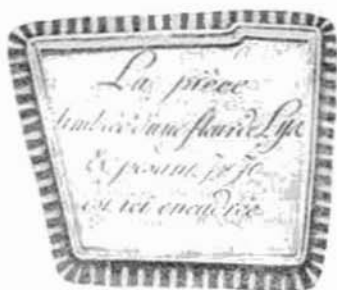 La pièce
timbrée d'une fleur de Lys
& pesant
est ici encadrée